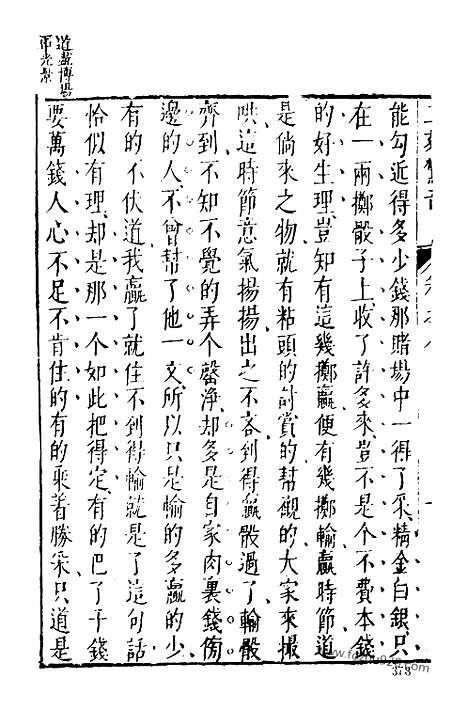 道盡博場
中光景
能勾近得多少錢那賭場中一得了采精金白銀只
在一兩擲骰子上收了許多來豈不是個不費本錢
的好生理豈知有這幾擲贏便有幾擲輸贏時節道
是倘來之物就有粘頭的討賞的幫襯的大家來撮
哄這時節意氣揚揚出之不吝到得贏骰過了輸骰
齊到不知不覺的弄个罄凈却多是自家肉裏錢傍
邊的人不曾幫了他一文所以只是輸的多贏的少
有的不伏道我贏了就住不到得輸就是了這句話
恰似有理却是那一个如此把得定有的巴了千錢
要萬錢人心不足不肯住的有的乘着勝采只道是
378